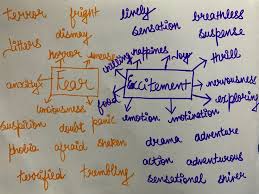 terror fright lively breathless
jitters dismay sensation suspense
horror unease chilling happiness Joy thrill
anxiety Fear Excitement nervousness
food exploring
consciousness emotion motivation
suspition doubt panic
phobia afraid shaken drama adventure
action adventurous
terrified trembling sensational shiver